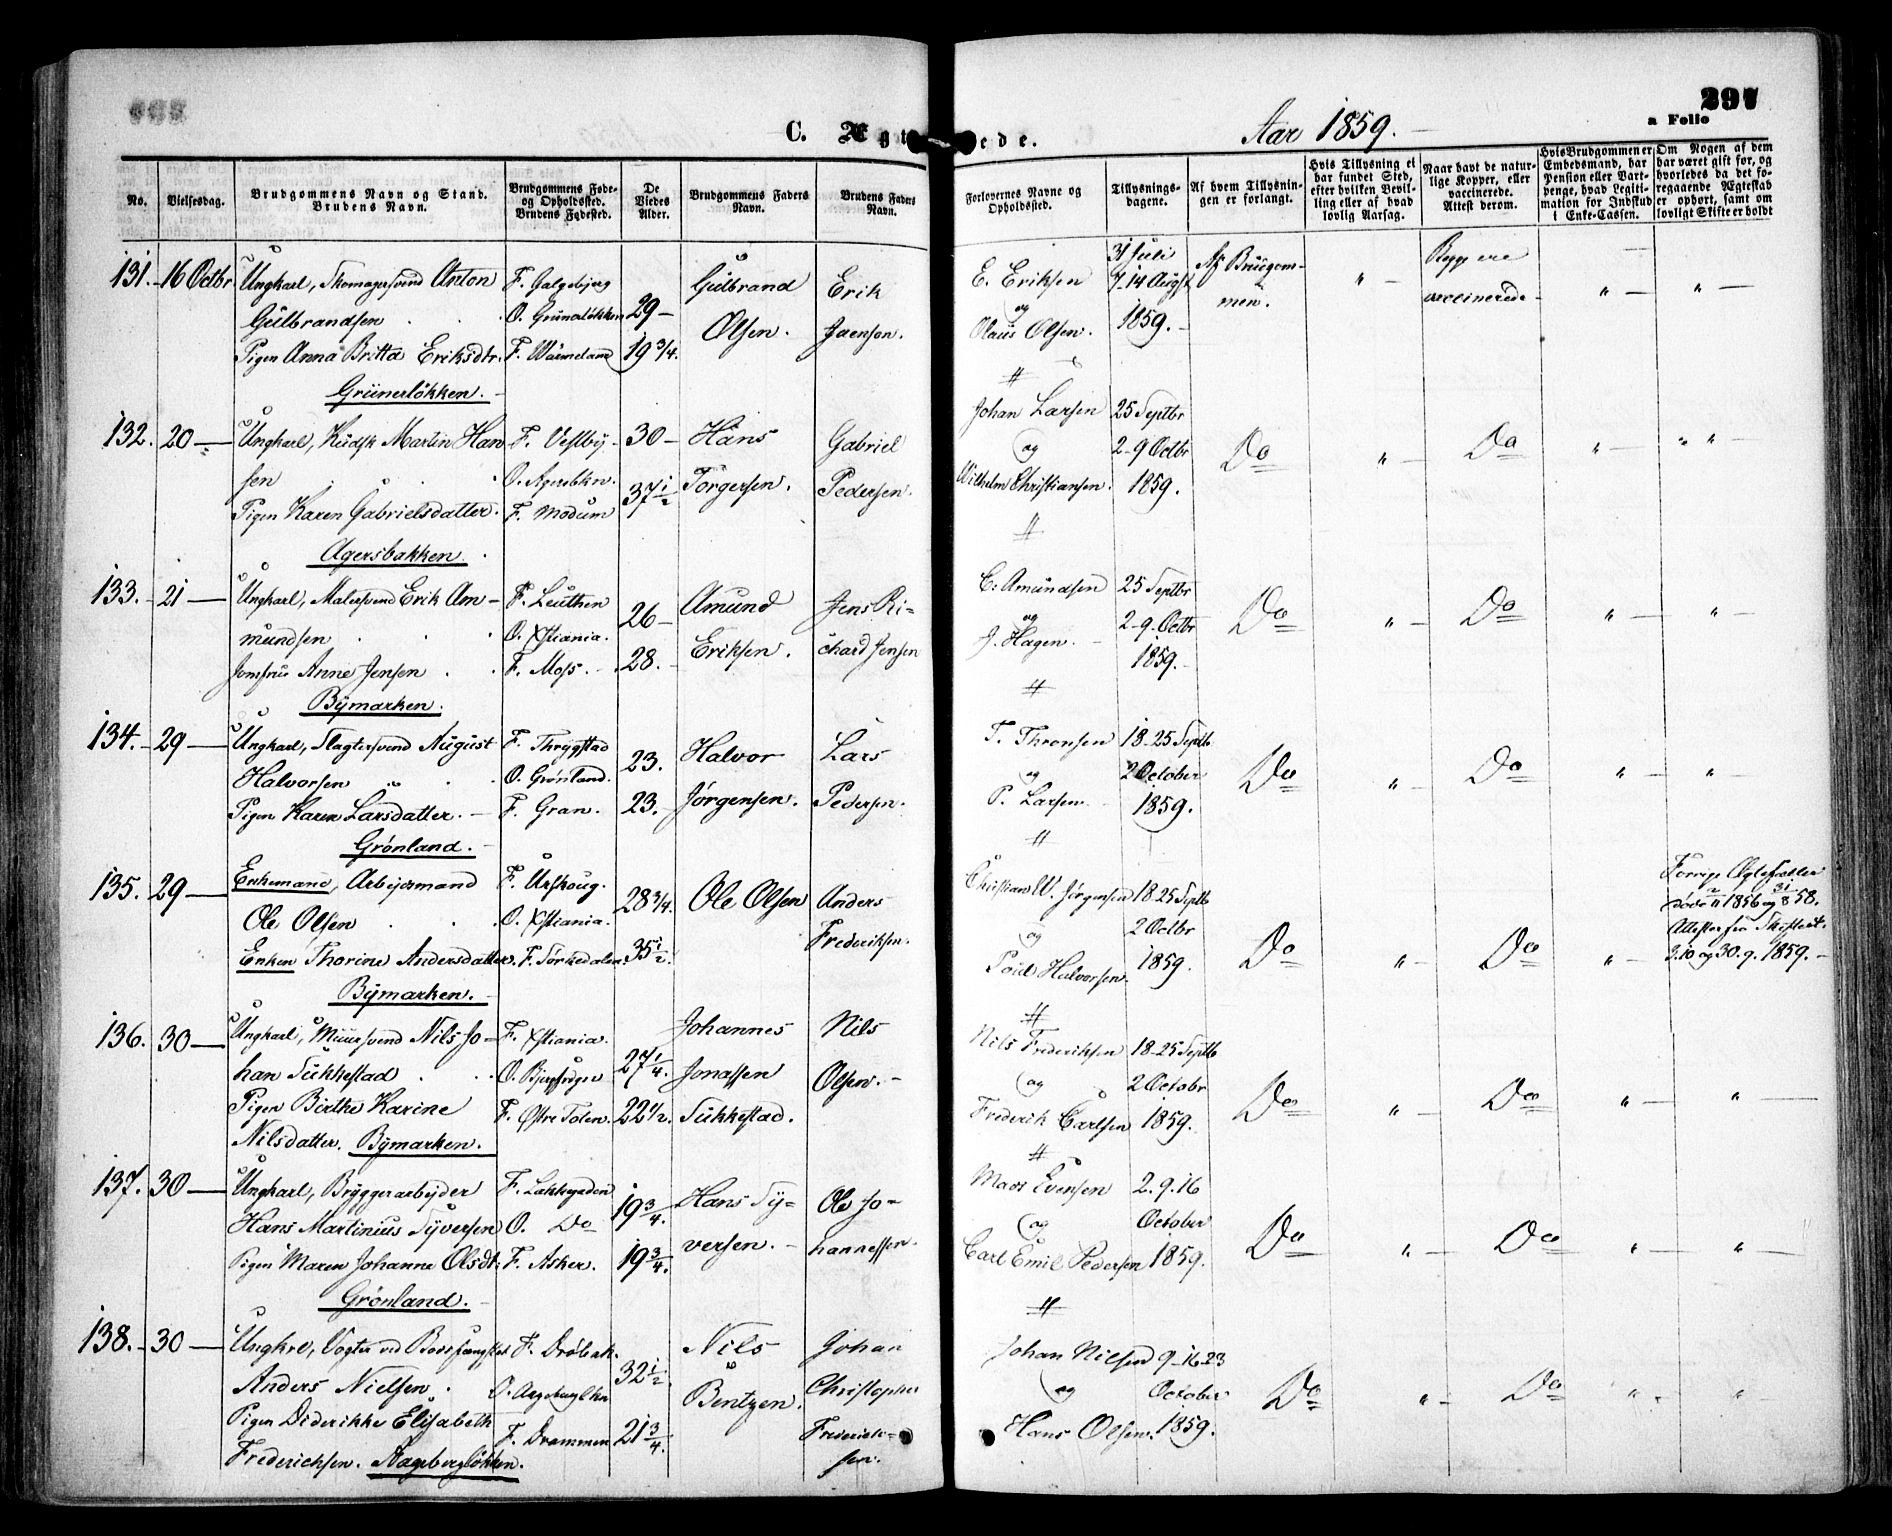 C. Ægtviede.
Aar 1859.
297
a Folio
No.
Vielsesdag.
Brudgommens Navn og Stand.
Brudens Navn.
Brudgommens Føde-
og Opholdssted.
Brudens Fødested.
De
Viedes
Alder.
Brudgommens Faders
Navn.
Brudens Faders
Navn.
Forlovernes Navne og
Opholdssted.
Tillysnings-
dagene.
Af hvem Tillysnin-
gen er forlangt.
Hvis Tillysning ei
har fundet Sted,
efter hvilken Bevil-
ling eller af hvad
lovlig Aarsag.
Naar havt de natur-
lige Kopper, eller
vaccinerede.
Attest derom.
Hvis Brudgommen er
Embedsmand, har
Pension eller Vart-
penge, hvad Legiti-
mation for Indskud
i Enke-Cassen.
Om Nogen af dem
har været gift før, og
hvorledes da det fo-
regaaende Ægteskab
er ophørt, samt om
lovligt Skifte er holdt
131. 16 Octbr
Ungkarl, Skomagersvend Anton
Gulbrandsen
Pigen Anna Britta Eriksdtr.
Grünerløkken.
F. Galgebjerg
O. Grünerløkken
F. Wärmeland
29
19 3/4.
Gulbrand
Olsen.
Erik
Jaenson.
E. Eriksen
og
Olaus Olsen.
31 Juli
7-14 Augst
1859.
Af Brudgom-
men.
"
Begge ere
vaccinerede
"
"
132. 20
Ungkarl, Kudsk Martin Han
sen
Pigen Karen Gabrielsdatter.
Agersbakken.
F. Vestby
O. Agersbkn.
F. Modum
30
37 1/2
Hans
Torgersen.
Gabriel
Pedersen.
Johan Larsen
og
Wilhelm Christiansen.
25 Septbr
2-9 Octbr
1859.
Do
"
Do
"
"
133. 21
Ungkarl, Malersvend Erik Am-
mundsen
Jomfru Anne Jensen
Bymarken.
F. Leuthen
O. Xstiania.
F. Moss.
26
28.
Amund
Eriksen.
Jens Ri-
chard Jensen
C. Amundsen
og
J. Hagen.
25 Septbr
2-9 Octbr
1859.
Do
"
Do
"
"
134. 29
Ungkarl, Slagtersvend August
Halvorsen
Pigen Karen Larsdatter.
Grønland.
F. Thrygstad
O. Grønland.
F. Gran.
23.
23.
Halvor
Jørgensen.
Lars
Pedersen.
T. Thronsen
og
P. Larsen
18-25 Septb
2 October
1859.
Do
"
Do
"
"
135. 29
Enkemand, Arbejdsmand
Ole Olsen
Enken Thorine Andersdatter.
Bymarken.
F. Urskoug.
O. Xstiania.
F. Sørkedalen.
28 3/4.
35 1/2.
Ole Olsen
Anders
Frederiksen.
Christian W. Jørgensen
og
Halvorsen.
18-25 Septb
2 Octbr
1859.
Do
"
Do
"
Forrige Ægtefæller
døde 2/11 1856 og 31/8 58.
Attester fra Skifteret.
3.10 og 30.9. 1859.
136. 30
Ungkarl, Muursvend Nils Jo-
han Sukkestad
Pigen Birthe Karine
Nilsdatter. Bymarken.
F. Xstiania.
O. Bjergfogen
F. Østre Toten.
27 1/4.
22 1/2.
Johannes
Jonassen
Sukkestad.
Nils
Olsen.
Nils Frederiksen
og
Frederik Carlsen
18-25 Septb
2 Octobr
1859.
Do
"
Do
"
"
137. 30
Ungkarl, Bryggerarbejder
Hans Martinius Syversen
Pigen Maren Johanne Olsdt.
Grönland.
F. Lakkegaden
O. Do
F. Asker.
19 3/4.
19 3/4.
Hans Sy-
versen.
Ole Jo-
hannessen.
Mads Evensen
og
Carl Emil Pedersen
2. 9. 16
October
1859.
Do
"
Do
"
"
138. 30
Ungkrl, Vogter ved Bodsfængslet
Anders Nielsen.
Pigen Diderikke Elisabeth
Frederichsen. Aagebergløkken.
F. Drøbak.
O. Aagebergløkn
F. Drammen
32 1/2.
21 3/4.
Nils
Bentzen.
Johan
Christopher
Frederich-
sen.
Johan Nilsen
og
Hans Olsen.
9-16-23
October
1859.
Do
"
Do
"
"